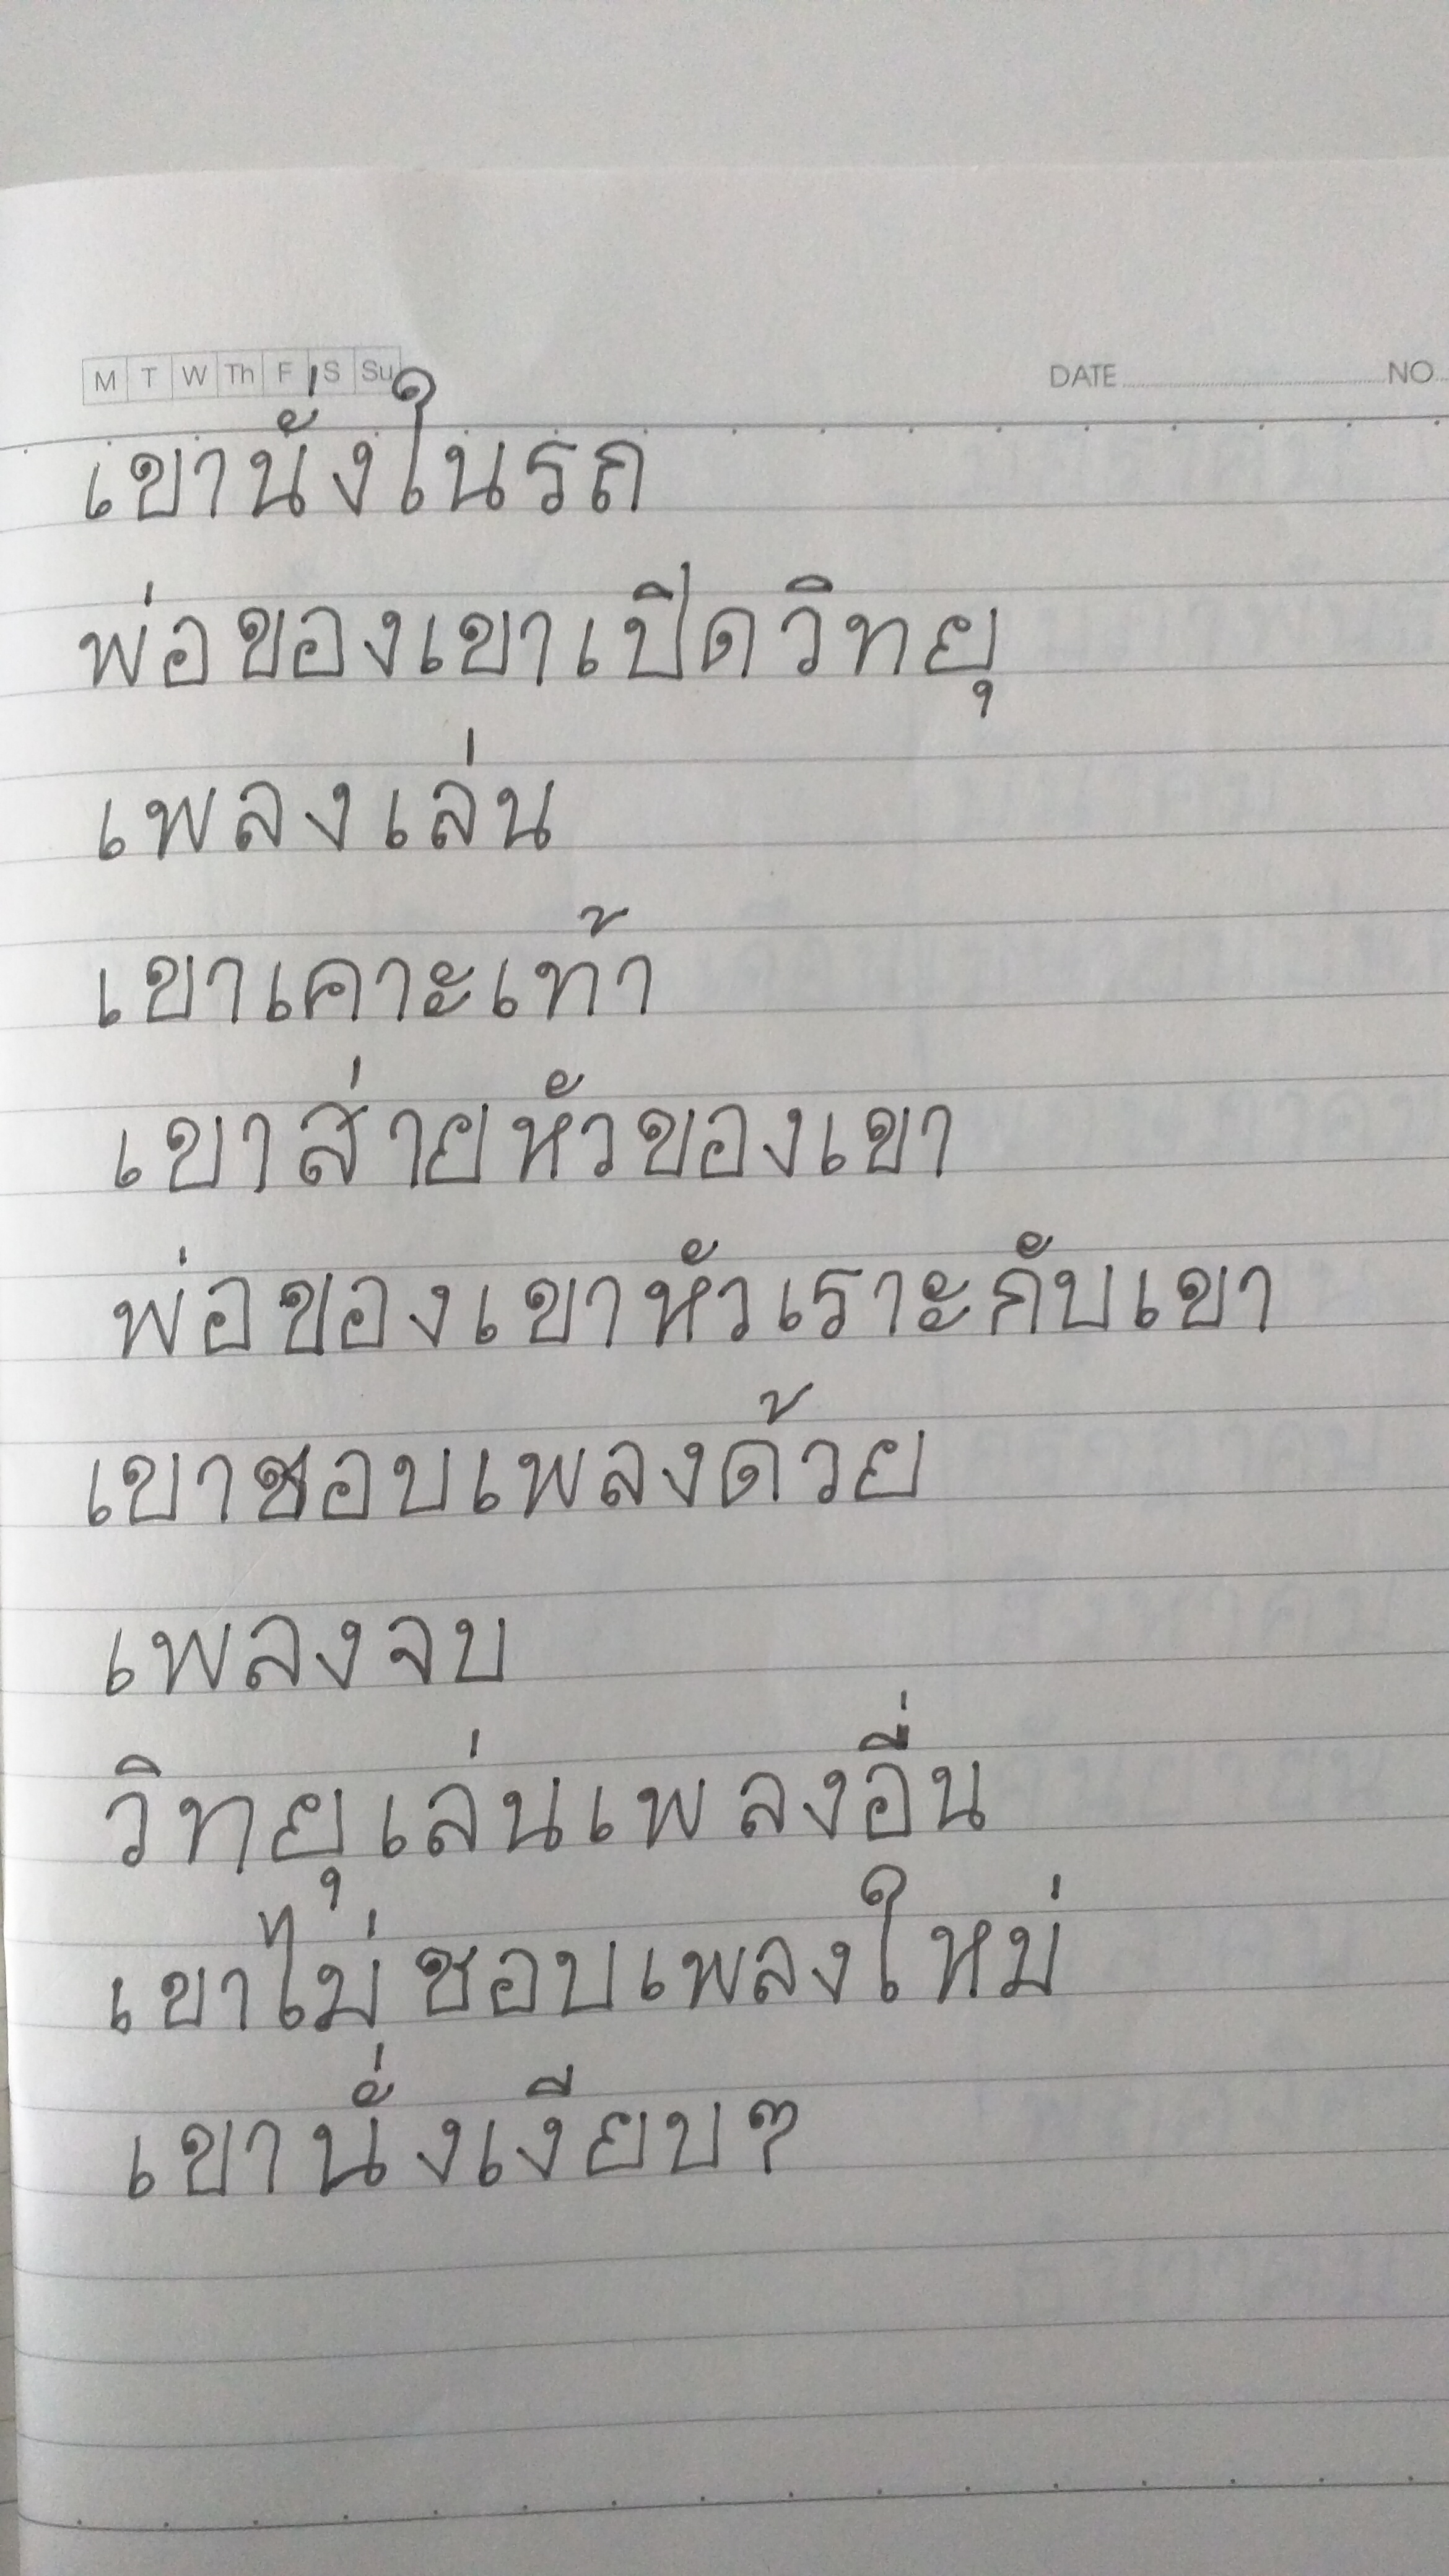 M T W Th F S Su DATE NO.
เขานั่งในรถ
พ่อของเขาเปิดวิทยุ
เพลงเล่น
เขาเคาะเท้า
เขาส่ายหัวของเขา
พ่อของเขาหัวเราะกับเขา
เขาชอบเพลงด้วย
เพลงจบ
วิทยุเล่นเพลงอื่น
เขาไม่ชอบเพลงใหม่
เขานั่งเงียบๆ